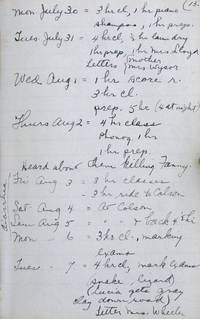 13.
Mon July 30 = 3 hr cl, 1 hr piano
shampoo, 1 hr prep.
Tues. July 31 = 4 hr cl, 3 hr laundry
1 hr prep, 1 hr Mrs Lloyd
Letters mother
Mrs Wysor
Wed Aug 1 = 1 hr score r.
3 hr cl.
prep. 5 hr (6 at night)
Thurs Aug 2 = 4 hr class
Phonog 1 hr
1 hr prep.
Heard about them killing Fanny.
Fri Aug 3 = 3 hr classes
3 hr ride to Colson
Sat Aug 4 = At Colson
Sun Aug 5 = " " & back 4 hr
Mon - 6 3 hr cl, marking
exams
Tues - 7 4 hr cl, mark exams
snake, lizard
(Lucia gets gray
clay down road)
Letter Mrs. Wheeler